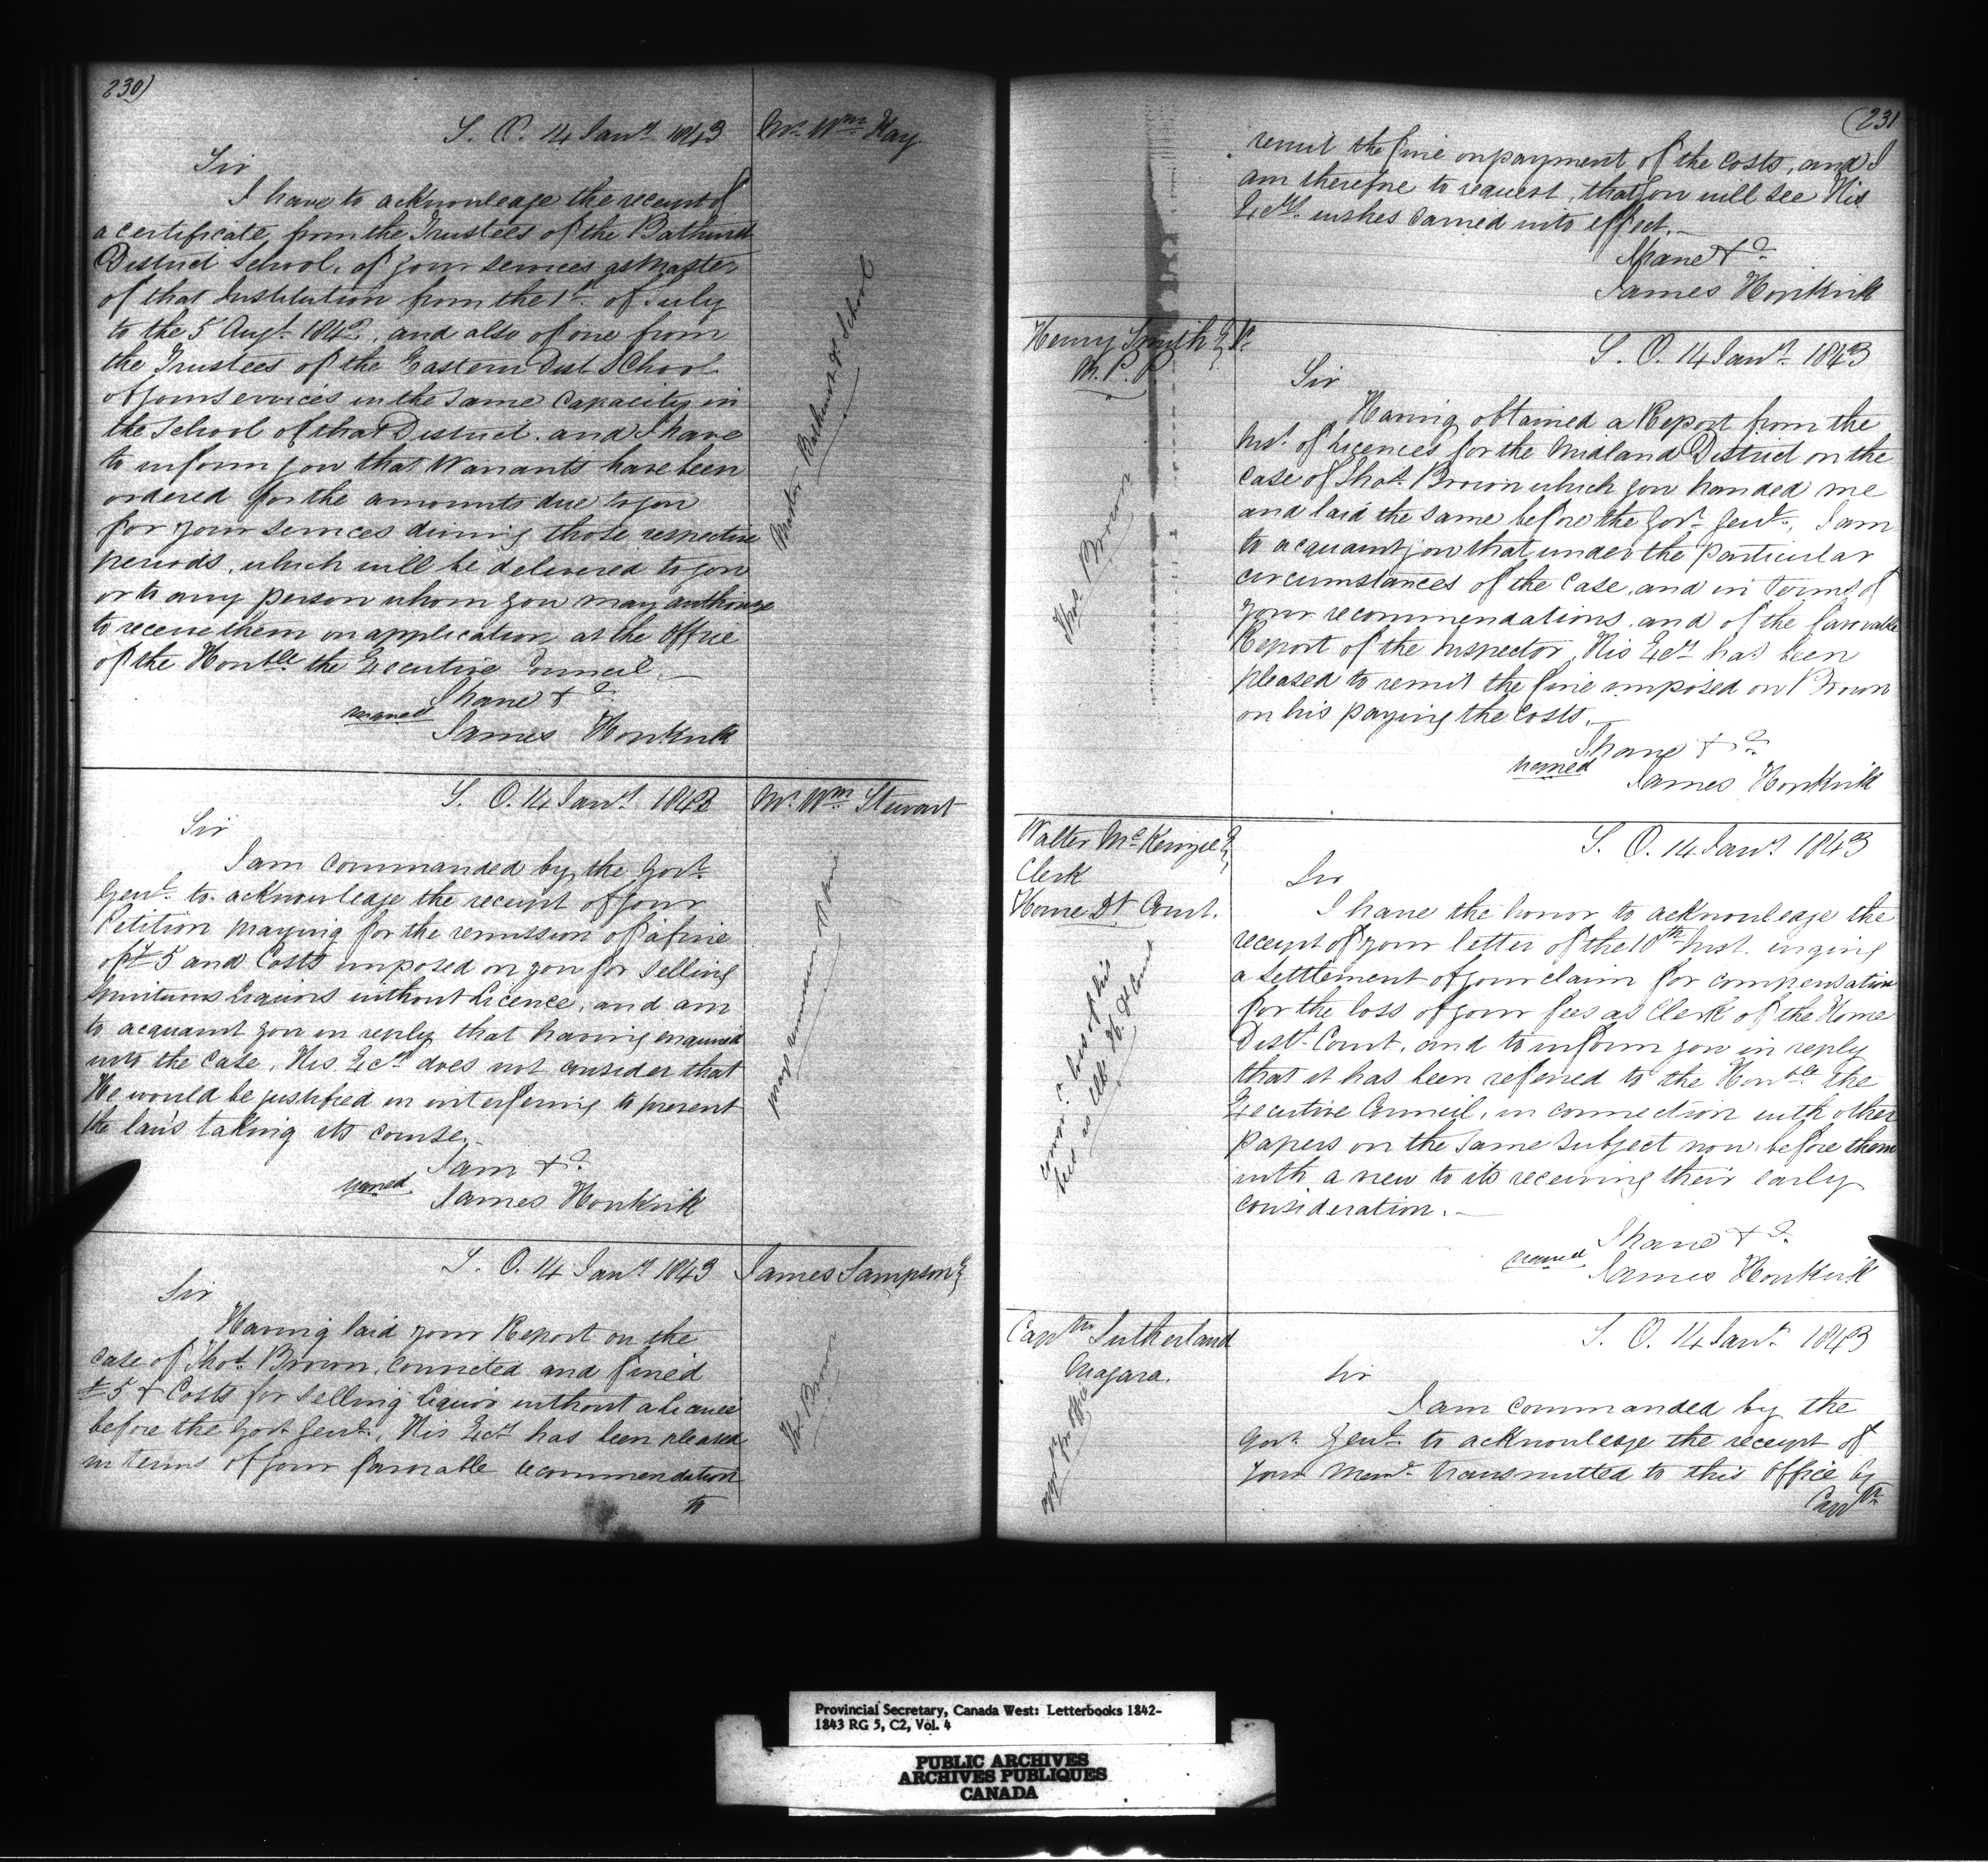 230)
S. O. 14 Jany. 1843
Mr. Wm. Kay
Sir
I have to acknowledge the receipt of
a certificate from the Trustees of the Bathurst
District School, of your services as Master
of that Institution from the 1st. of July
to the 5 Augt. 1842, and also of one from
the Trustees of the Eastern Dist School
of your services in the same capacity in
the School of that District. and I have
to inform you that Warrants have been
ordered for the amounts due to you
for your services during those respective
periods, which will be delivered to you
or to any person whom you may authorize
to receive them on application at the Office
of the Honble the Executive Council.
I have &c.
signed
James Hopkirk
Master Bathurst Dt School
S. O. 14 Jany 1843
Mr. Wm. Stewart
Sir
I am commanded by the Govr.
Genl. to acknowledge the receipt of your
Petition praying for the remission of a fine
of £5 and Costs imposed on you for selling
Spirituous Liquors without Licence, and am
to acquaint you in reply that having enquired
into the case, His Excy does not consider that
He would be justified in interfering to prevent
the law's taking its course.
I am &c.
signed
James Hopkirk
prays remission of fine
S. O. 14 Jany 1843
James Sampson E
Sir
Having laid your Report on the
case of Thos. Brown, convicted and fined
£5 & Costs for selling liquor without a licence
before the Govr Genl., His Excy has been pleased
in terms of your favorable recommendation
to
Thos. Brown
(231
remit the fine on payment of the costs, and I
am therefore to request, that you will see His
Excy's. wishes carried into effect.
I have &c.
James Hopkirk
Henry Smith Er.
M. P. P
S. O. 14 Jany. 1843
Sir
Having obtained a Report from the
Inst. of Licences for the Midland District on the
case of Thos. Brown which you handed me
and laid the same before the Govr. Genl., I am
to acquaint you that under the particular
circumstances of the case, and in terms of
your recommendations, and of the favorable
Report of the Inspector, His Excy has been
pleased to remit the fine imposed on Brown
on his paying the costs.
I have &c.
signed
James Hopkirk
Thos. Brown
Walter McKenzie E
Clerk
Home Dt Court.
S. O. 14 Jany 1843
Sir
I have the honor to acknowledge the
receipt of your letter of the 10th Inst. urging
a settlement of your claim for compensation
for the loss of your fees as Clerk of the Home
Dist. Court, and to inform you in reply
that it has been referred to the Honble the
Executive Council, in connection with other
papers on the same subject now before them
with a view to its receiving their early
consideration.
I have &c.
signed
James Hopkirk
loss of his
fees as Clk H. Dt Court
Captn Sutherland
Niagara.
S. O. 14 Jany. 1843
Sir
I am commanded by the
Govr. Genl. to acknowledge the receipt of
your Meml. transmitted to this Office by
Captn
Provincial Secretary, Canada West: Letterbooks 1842-
1843 RG 5, C2, Vol. 4
PUBLIC ARCHIVES
ARCHIVES PUBLIQUES
CANADA